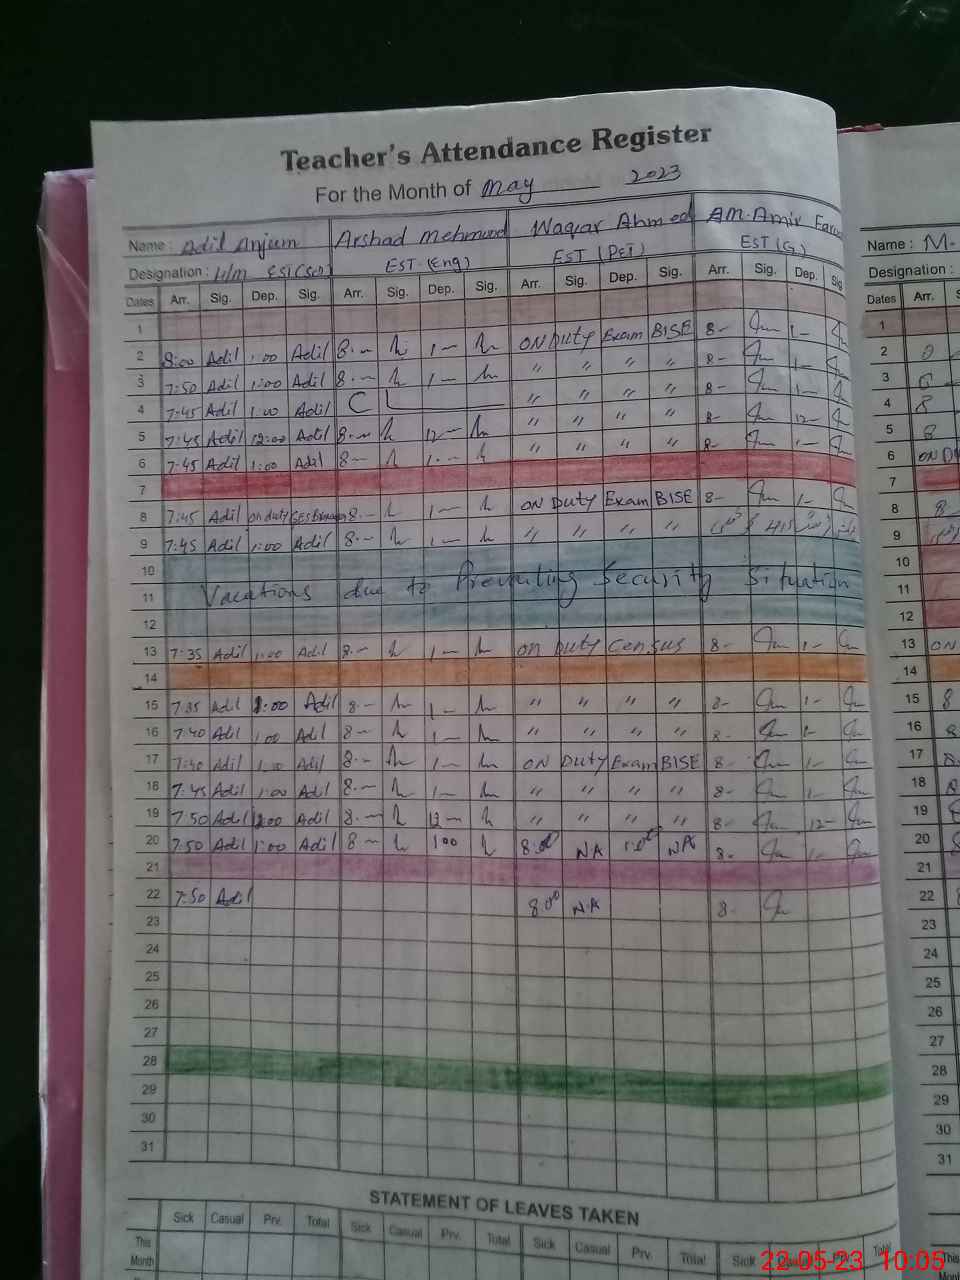 Teacher's Attendance Register
For the Month of May 2023
Name : Adil Anjum Arshad Mehmood Waqar Ahmed AM. Amir Name : M-
Designation : H/m EST (Eng) EST (PET) EST (G) Designation :
Dates Arr. Sig. Dep. Sig. Arr. Sig. Dep. Sig. Arr. Sig. Dep. Sig. Arr. Sig. Dep. Sig Dates Arr.
1 1
2 8:00 Adil 1:00 Adil 8.— 1— ON Duty Exam BISE 8- 1— 2
3 7:50 Adil 1:00 Adil 8.— 1— " " " " 8- 1— 3
4 7:45 Adil 1:00 Adil C L " " " " 8- 1— 4 8
5 7:45 Adil 12:00 Adil 8.— 12— " " " " 8- 12— 5 8
6 7:45 Adil 1:00 Adil 8— 1.— " " " " 8- 1— 6 ON
7 7
8 7:45 Adil on duty 8.— 1— ON Duty Exam BISE 8- 1— 8 8
9 7:45 Adil 1:00 Adil 8.— 1— " " " " 9
10 10
11 Vacations due to Prevailing Security Situation 11
12 12
13 7:35 Adil 1:00 Adil 8.— 1— on Duty Census 8- 1- 13 ON
14 14
15 7:35 Adil 1:00 Adil 8— 1— " " " " 8- 1- 15 8
16 7:40 Adil 1:00 Adil 8— 1— " " " " 8- 1- 16 8
17 7:40 Adil 1:00 Adil 8.— 1— ON Duty Exam BISE 8- 1- 17 8
18 7:45 Adil 1:00 Adil 8.— 1— " " " " 8- 1- 18 8
19 7:50 Adil 12:00 Adil 8.— 12— " " " " 8- 12- 19
20 7:50 Adil 1:00 Adil 8— 1:00 8:00 NA 1:00 NA 8- 1- 20
21 21
22 7:50 Adil 8:00 N.A 8- 22
23 23
24 24
25 25
26 26
27 27
28 28
29 29
30 30
31 31
STATEMENT OF LEAVES TAKEN
Sick Casual Prv. Total Sick Casual Prv. Total Sick Casual Prv. Total Sick Casual Prv. Total
This Month This
22-05-23 10:05